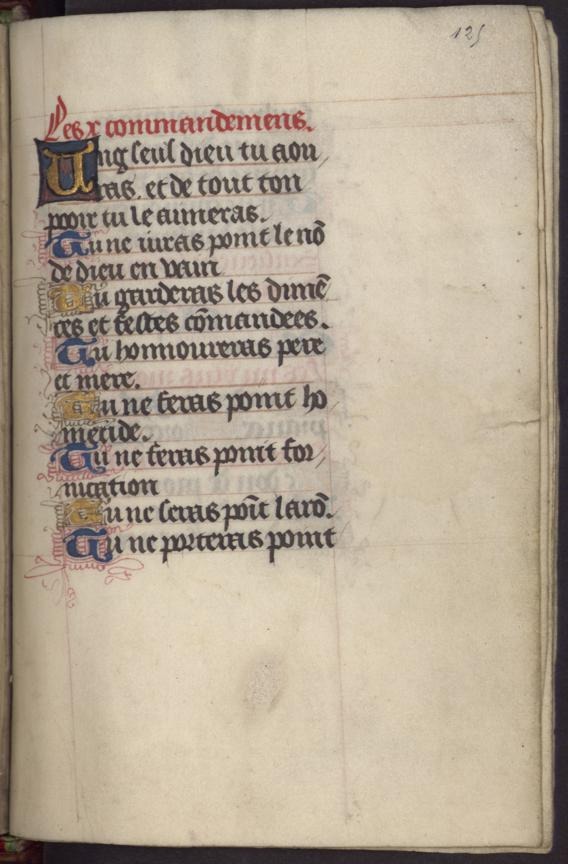 125
Les x commandemens.
Ung seul dieu tu aou/
ras. et de tout ton
pooir tu le aimeras.
Tu ne iuras point le nō
de dieu en vain
Tu garderas les dimē
ces et festes cōmandees.
Tu honnoureras pere
et mere.
Tu ne feras point ho
micide.
Tu ne feras point for/
nication
Tu ne seras poīt larō.
Tu ne porteras point